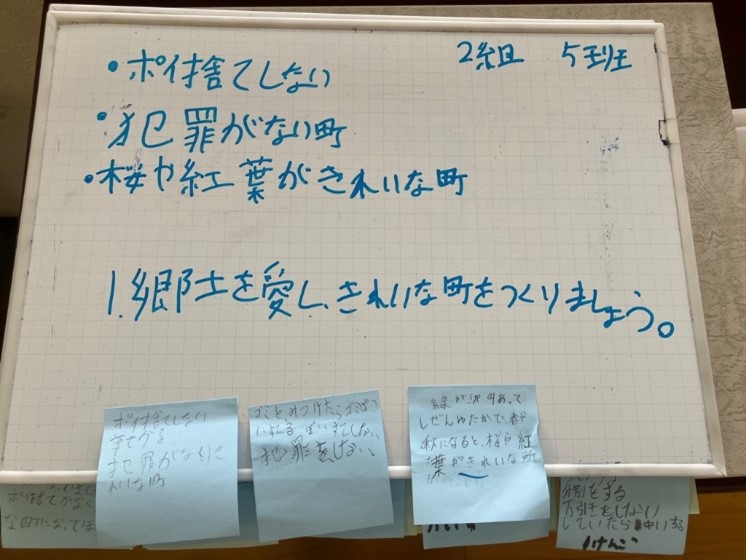 2組 5班
・ポイ捨てしない
・犯罪がない町
・桜や紅葉がきれいな町
1.郷土を愛し、きれいな町をつくりましょう。
ポイ捨てしない
犯罪がなくき
れいな町
ゴミをみつけたら
犯罪をしない、
緑が沢山あって
しぜんゆたかで
秋になると桜や紅
葉がきれいな町
ポイ捨てがなく
な町になってほ
分別をする
万引をしない
していたら
けんご